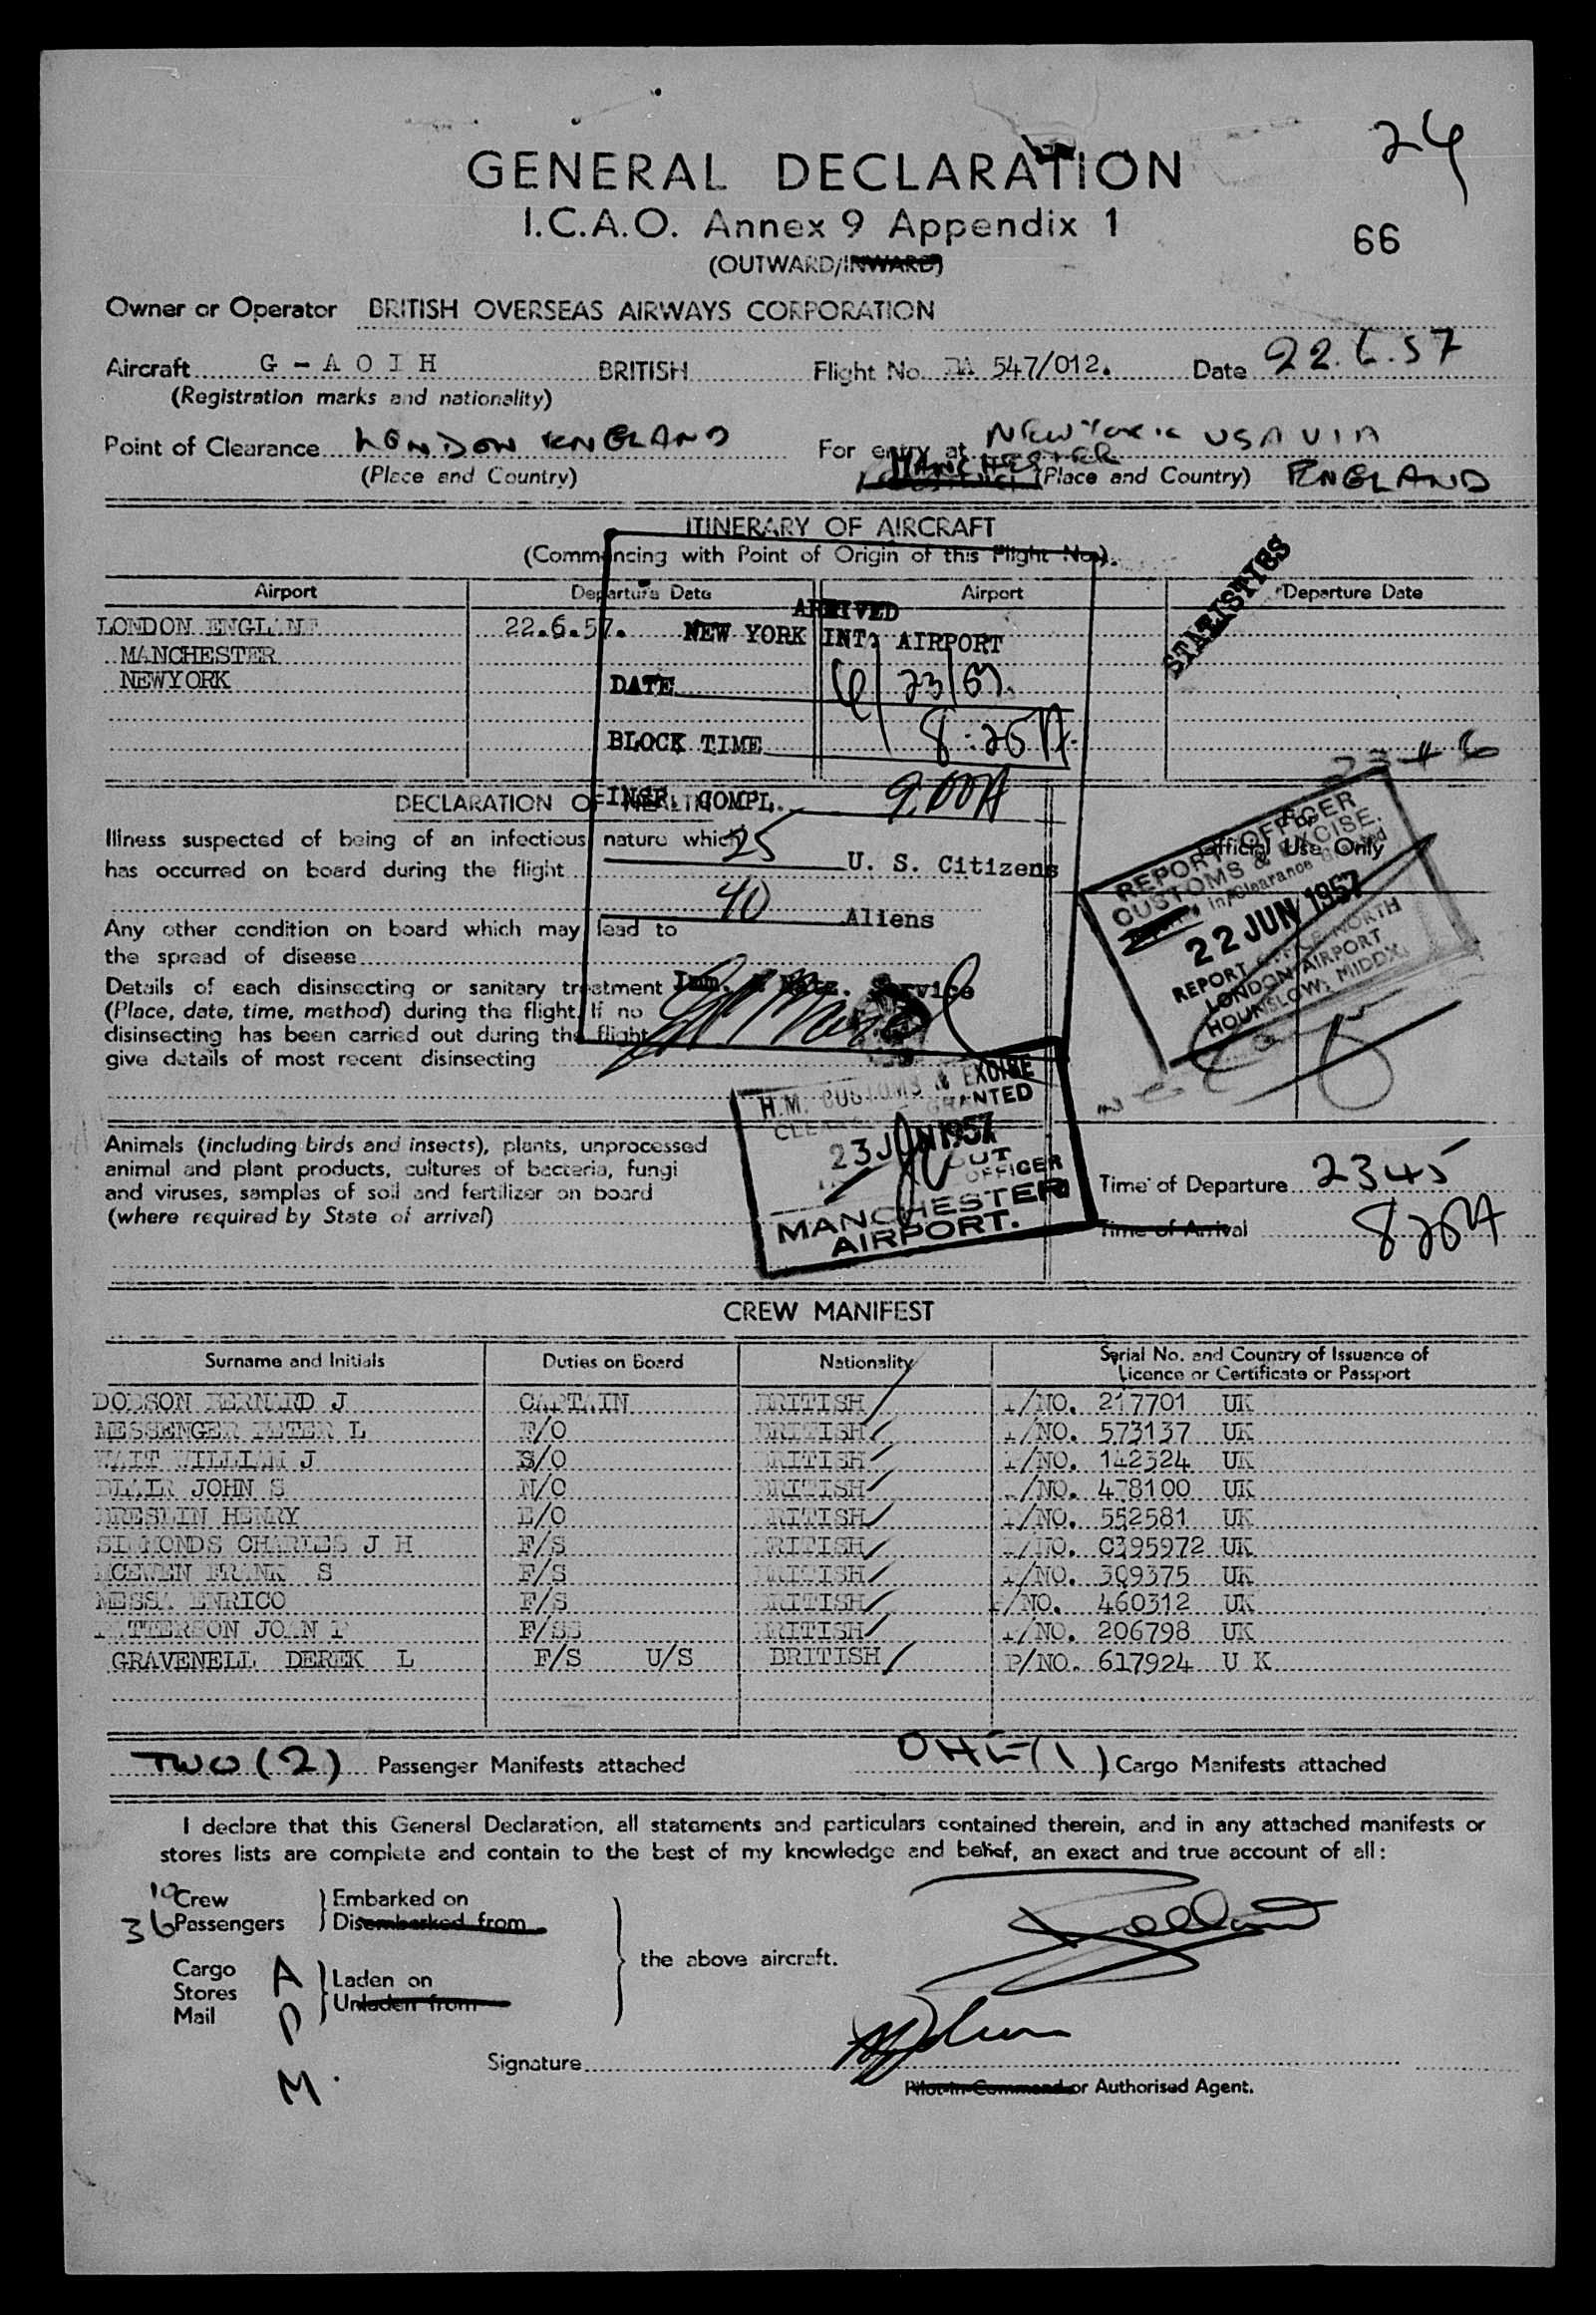 24
GENERAL DECLARATION
I.C.A.O. Annex 9 Appendix 1
66
(OUTWARD/INWARD)
Owner or Operator BRITISH OVERSEAS AIRWAYS CORPORATION
Aircraft G - A O I H BRITISH Flight No. BA 547/012. Date 22.6.57
(Registration marks and nationality)
Point of Clearance LONDON ENGLAND For entry at NEW YORK USA VIA
MANCHESTER
(Place and Country) (Place and Country) ENGLAND
ITINERARY OF AIRCRAFT
(Commencing with Point of Origin of this Flight No.).
STATISTICS
Airport Departure Date Airport Departure Date
LONDON ENGLAND 22.6.57.
MANCHESTER
NEWYORK
ARRIVED
NEW YORK INT. AIRPORT
DATE 6/23/57.
BLOCK TIME 8:26A.
INSP. COMPL. 9.00A
25 U. S. Citizens
40 Aliens
Imm. & Natz. Service
DECLARATION OF HEALTH
Illness suspected of being of an infectious nature which
has occurred on board during the flight
Any other condition on board which may lead to
the spread of disease
Details of each disinsecting or sanitary treatment
(Place, date, time, method) during the flight. If no
disinsecting has been carried out during the flight
give details of most recent disinsecting
For
Official Use Only
REPORT OFFICER
CUSTOMS & EXCISE.
Clearance Granted
22 JUN 1957
REPORT OFFICE NORTH
LONDON AIRPORT
HOUNSLOW, MIDDX.
H.M. CUSTOMS & EXCISE
CLEARANCE GRANTED
23 JUN 1957
OUT
OFFICER
MANCHESTER
AIRPORT.
Animals (including birds and insects), plants, unprocessed
animal and plant products, cultures of bacteria, fungi
and viruses, samples of soil and fertilizer on board
(where required by State of arrival)
Time of Departure 2345
Time of Arrival 826A
CREW MANIFEST
Surname and Initials Duties on Board Nationality Serial No. and Country of Issuance of
Licence or Certificate or Passport
DODSON BERNARD J CAPTAIN BRITISH P/NO. 217701 UK
MESSENGER PETER L F/O BRITISH P/NO. 573137 UK
WAIT WILLIAM J S/O BRITISH P/NO. 142324 UK
BLAIR JOHN S N/O BRITISH P/NO. 478100 UK
BRESLIN HENRY E/O BRITISH P/NO. 552581 UK
SIMMONDS CHARLES J H F/S BRITISH P/NO. 0395972 UK
MCEWEN FRANK S F/S BRITISH P/NO. 309375 UK
MESSA ENRICO F/S BRITISH P/NO. 460312 UK
PATTERSON JOAN P F/SS BRITISH P/NO. 206798 UK
GRAVENELL DEREK L F/S U/S BRITISH P/NO. 617924 U K
TWO (2) Passenger Manifests attached ONE (1) Cargo Manifests attached
I declare that this General Declaration, all statements and particulars contained therein, and in any attached manifests or
stores lists are complete and contain to the best of my knowledge and belief, an exact and true account of all:
10 Crew Embarked on
36 Passengers Disembarked from
the above aircraft.
Cargo A Laden on
Stores P Unladen from
Mail M.
Signature
Pilot-in-Command or Authorised Agent.